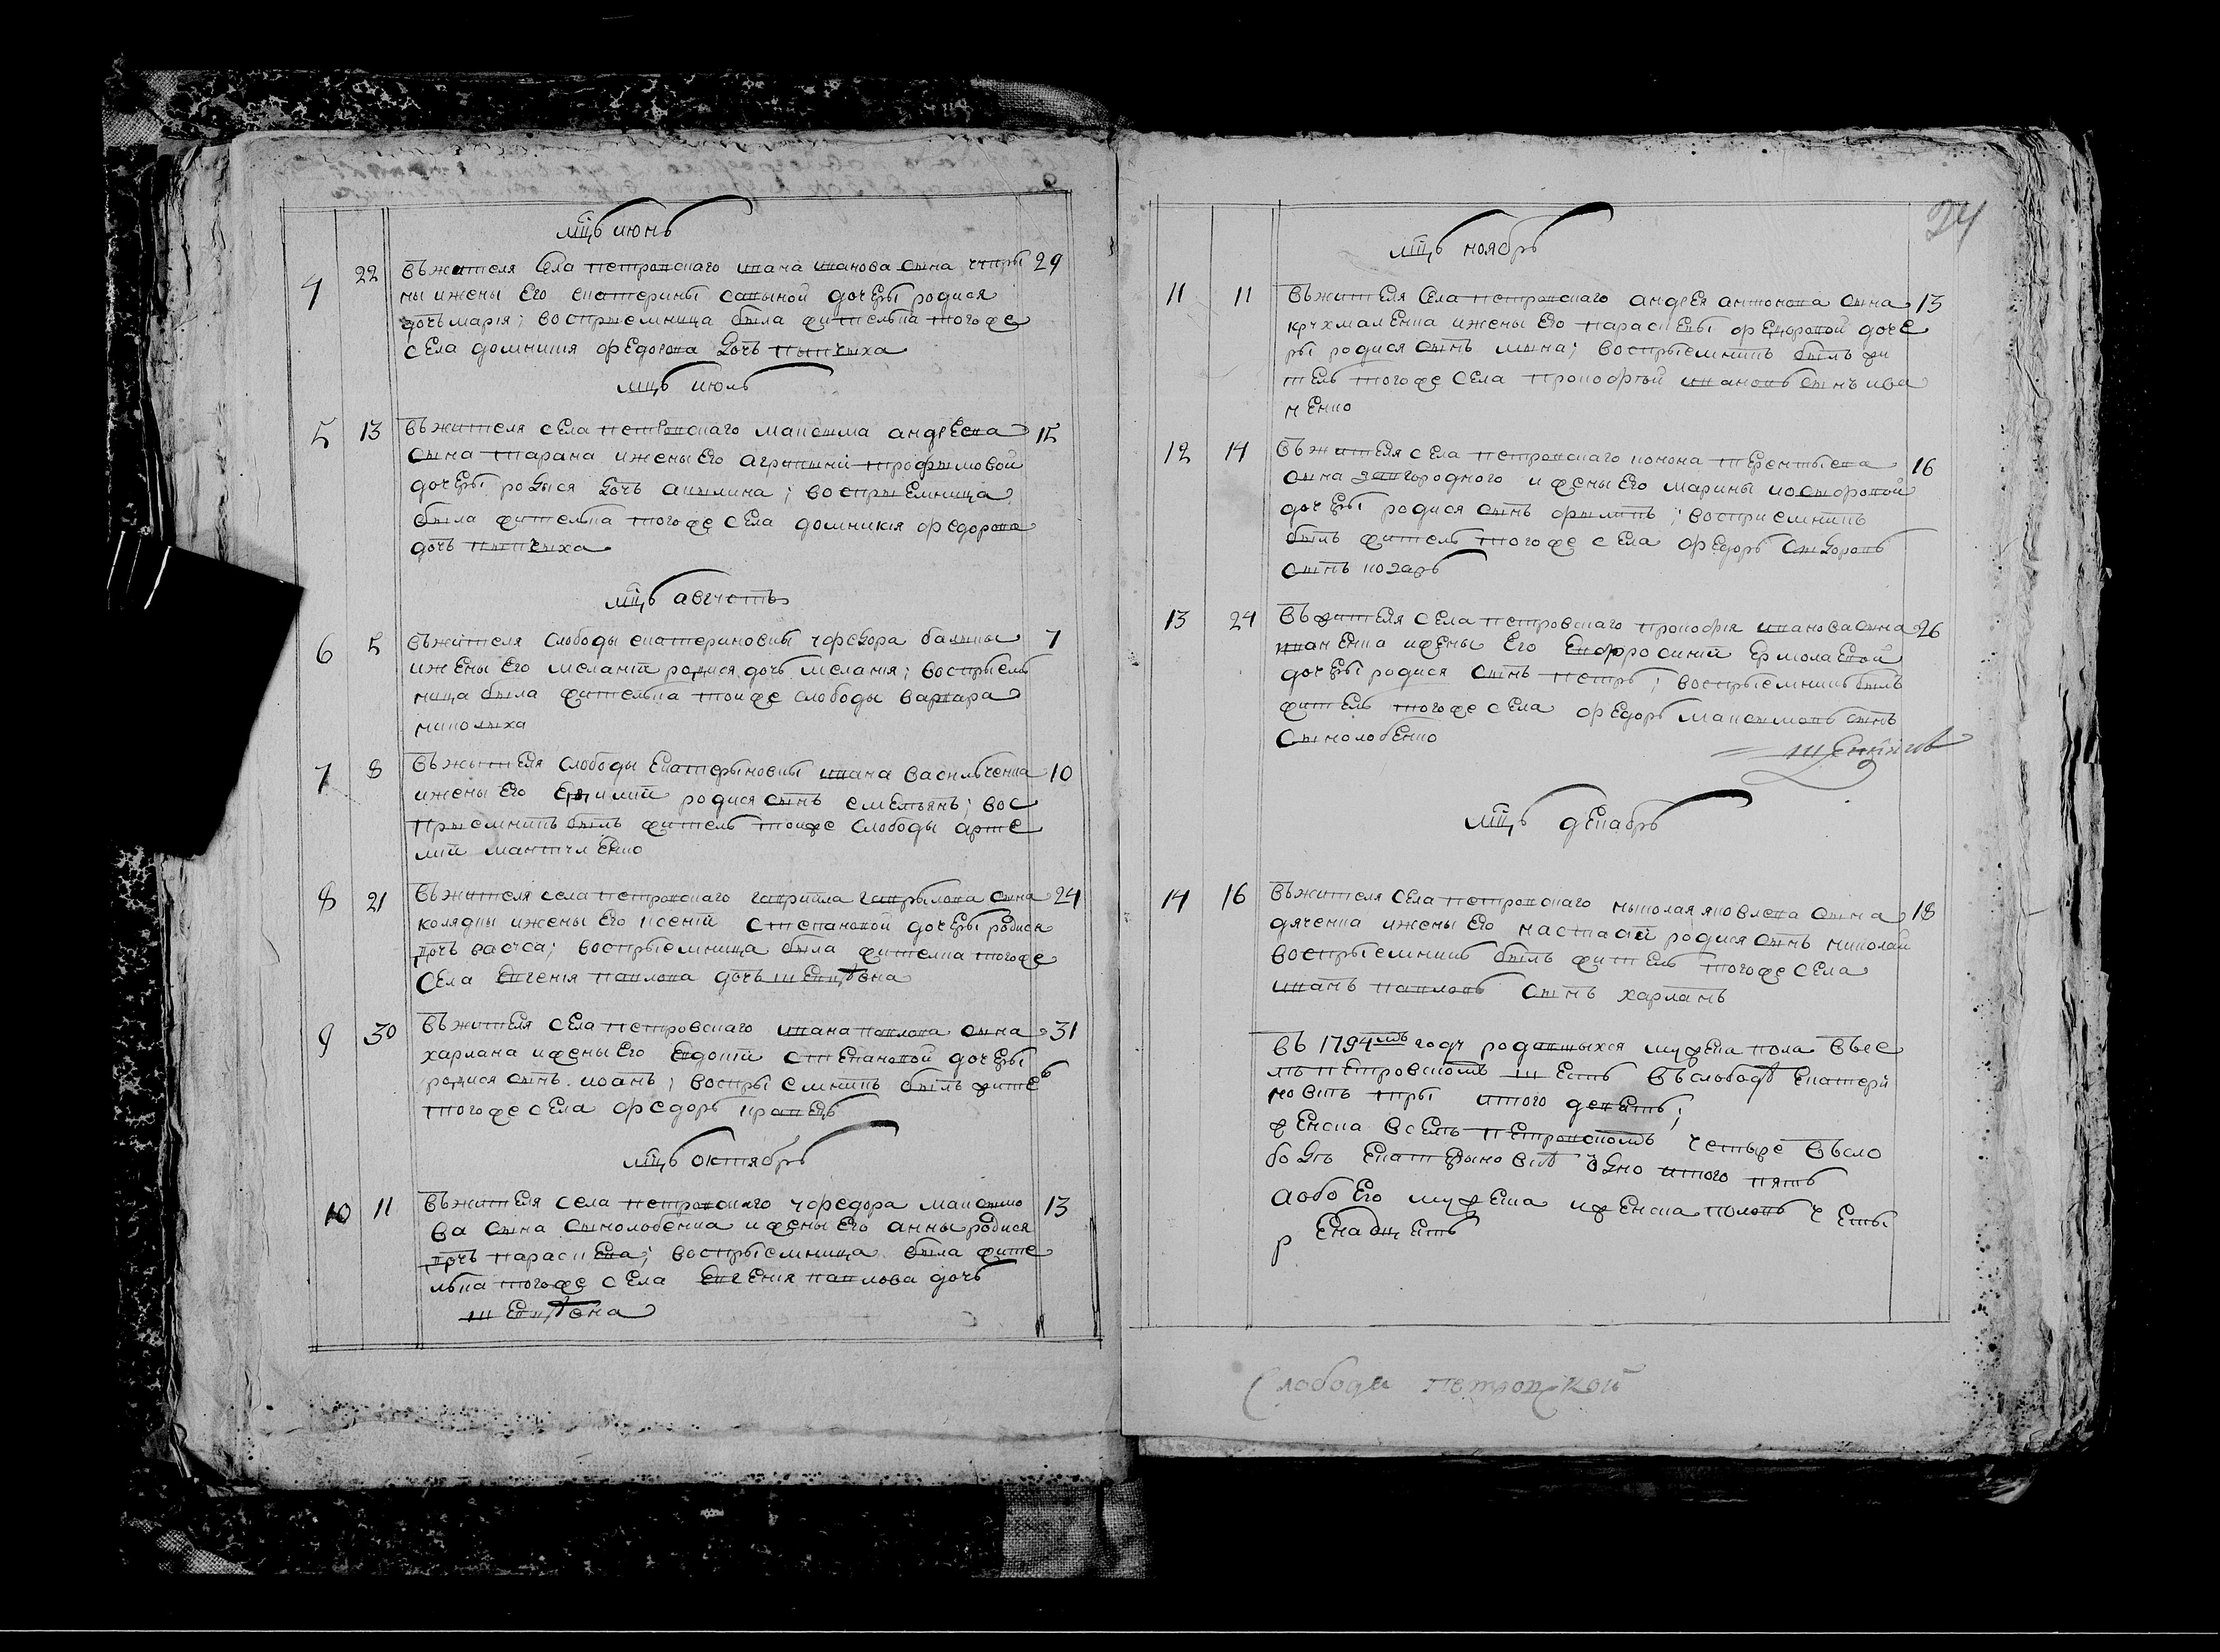 мц҃ъ июнь
4 22 въ жителя села петровскаго ивана иванова сына
ны и жены его екатерины савыной дочеры родися 29
дочь марія; воспрыемныца была жителька тогоже
села домникия федорова дочь
мц҃ъ июль
5 13 въ жителя села петровскаго максыма андреева 15
сына тарана и жены его агрыпыни трофымовой
дочеры родыся дочь акылина; воспрыемница
была жителька тогоже села домникія федорова
дочь
мц҃ъ августъ
6 5 въ жителя слободы екатериновкы у федора 7
и жены его меланій родися дочь меланія; воспрыем
ница была жителька тоиже слободы варвара
николыха
7 8 въ жытеля слободы екатерыновкы ивана васильченка 10
и жены его родися сынъ емельянъ; вос
прыемникъ былъ житель тоиже слободы арте
мій
8 21 въ жителя села петровскаго гаврыила гаврылова сына 24
колядкы и жены его ксеній степановой дочеры родися
дочь васса; воспрыемница была жителка тогоже
села евгенія павлова дочь шевцѣвна
9 30 въ жителя села петровскаго ивана павлова сына 31
харлана и жены его евдокій степановой дочеры
родися сынъ иоанъ; воспрыемникъ былъ жителъ
тогоже села федоръ кравецъ
мц҃ъ октябрь
10 11 въ жителя села петровскаго у федора максымо 13
ва сына сынолобенка и жены его анны родися
дочь параскева; воспрыемница была жите
лька тогоже села евгенія павлова дочь
шевцѣвна
24
мц҃ъ ноябрь
11 11 въ жителя села петровскаго андрея антонова сына 13
крухмаленка и жены его параскевы федоровой доче
ры родися сынъ мына; воспрыемникъ былъ жи
тель тогоже села прокофый ивановъ сынъ ива
ненко
12 14 въ жителя села петровскаго конона терентыева 16
сына загородного и жены его марины
дочеры родися сынъ фылипъ; восприемникъ
былъ житель тогоже села федоръ сыдоровъ
сынъ козарь
13 24 въ жителя села петровскаго прокофія иванова сына 26
иваненка и жены его евфросиніи ермолаевой
дочеры родися сынъ петръ; воспрыемникъ былъ
житель тогоже села федоръ максымовъ сынъ
сынолобенко
мц҃ъ декабрь
14 16 въ жителя села петровскаго ныколая яковлева сына 18
дяченка и жены его настасіи родися сынъ николай
воспрыемникъ былъ житель тогоже села
иванъ павловъ сынъ харланъ
въ 1794мъ году родывшыхся мужеска пола въ се
лѣ петровскомъ шесть въ слободѣ екатери
новкѣ тры итого девять;
женска в селѣ петровскомъ четыре въ сло
бодѣ екатерыновкѣ одно итого пять
а обоего мужеска и женска половъ четы
ренадцеть
Слободы Петровской